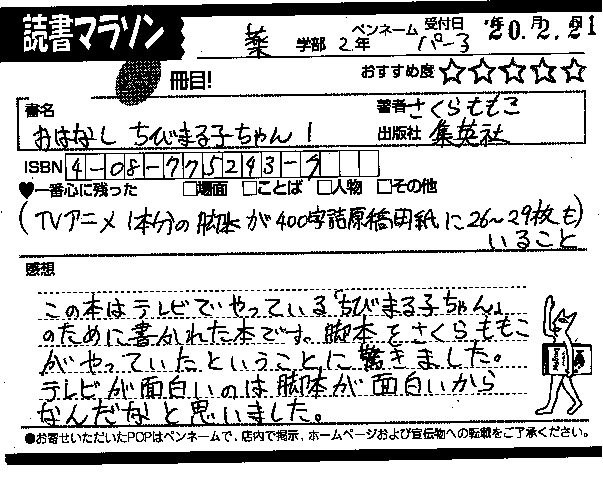 読書マラソン
薬 学部 2年 ペンネーム パー子 受付日 '20.2.21
冊目!
おすすめ度 ☆☆☆☆☆
書名
おはなし ちびまる子ちゃん 1
著者 さくらももこ
出版社 集英社
ISBN 4-08-775293-
♥一番心に残った □場面 □ことば □人物 □その他
(TVアニメ1本分の脚本が400字詰原稿用紙に26~29枚も)
いること
感想
この本はテレビでやっている「ちびまる子ちゃん」
のために書かれた本です。脚本をさくらももこ
がやっていたということに驚きました。
テレビが面白いのは脚本が面白いから
なんだなと思いました。
●お寄せいただいたPOPはペンネームで、店内で掲示、ホームページおよび宣伝物への転載をご了承ください。